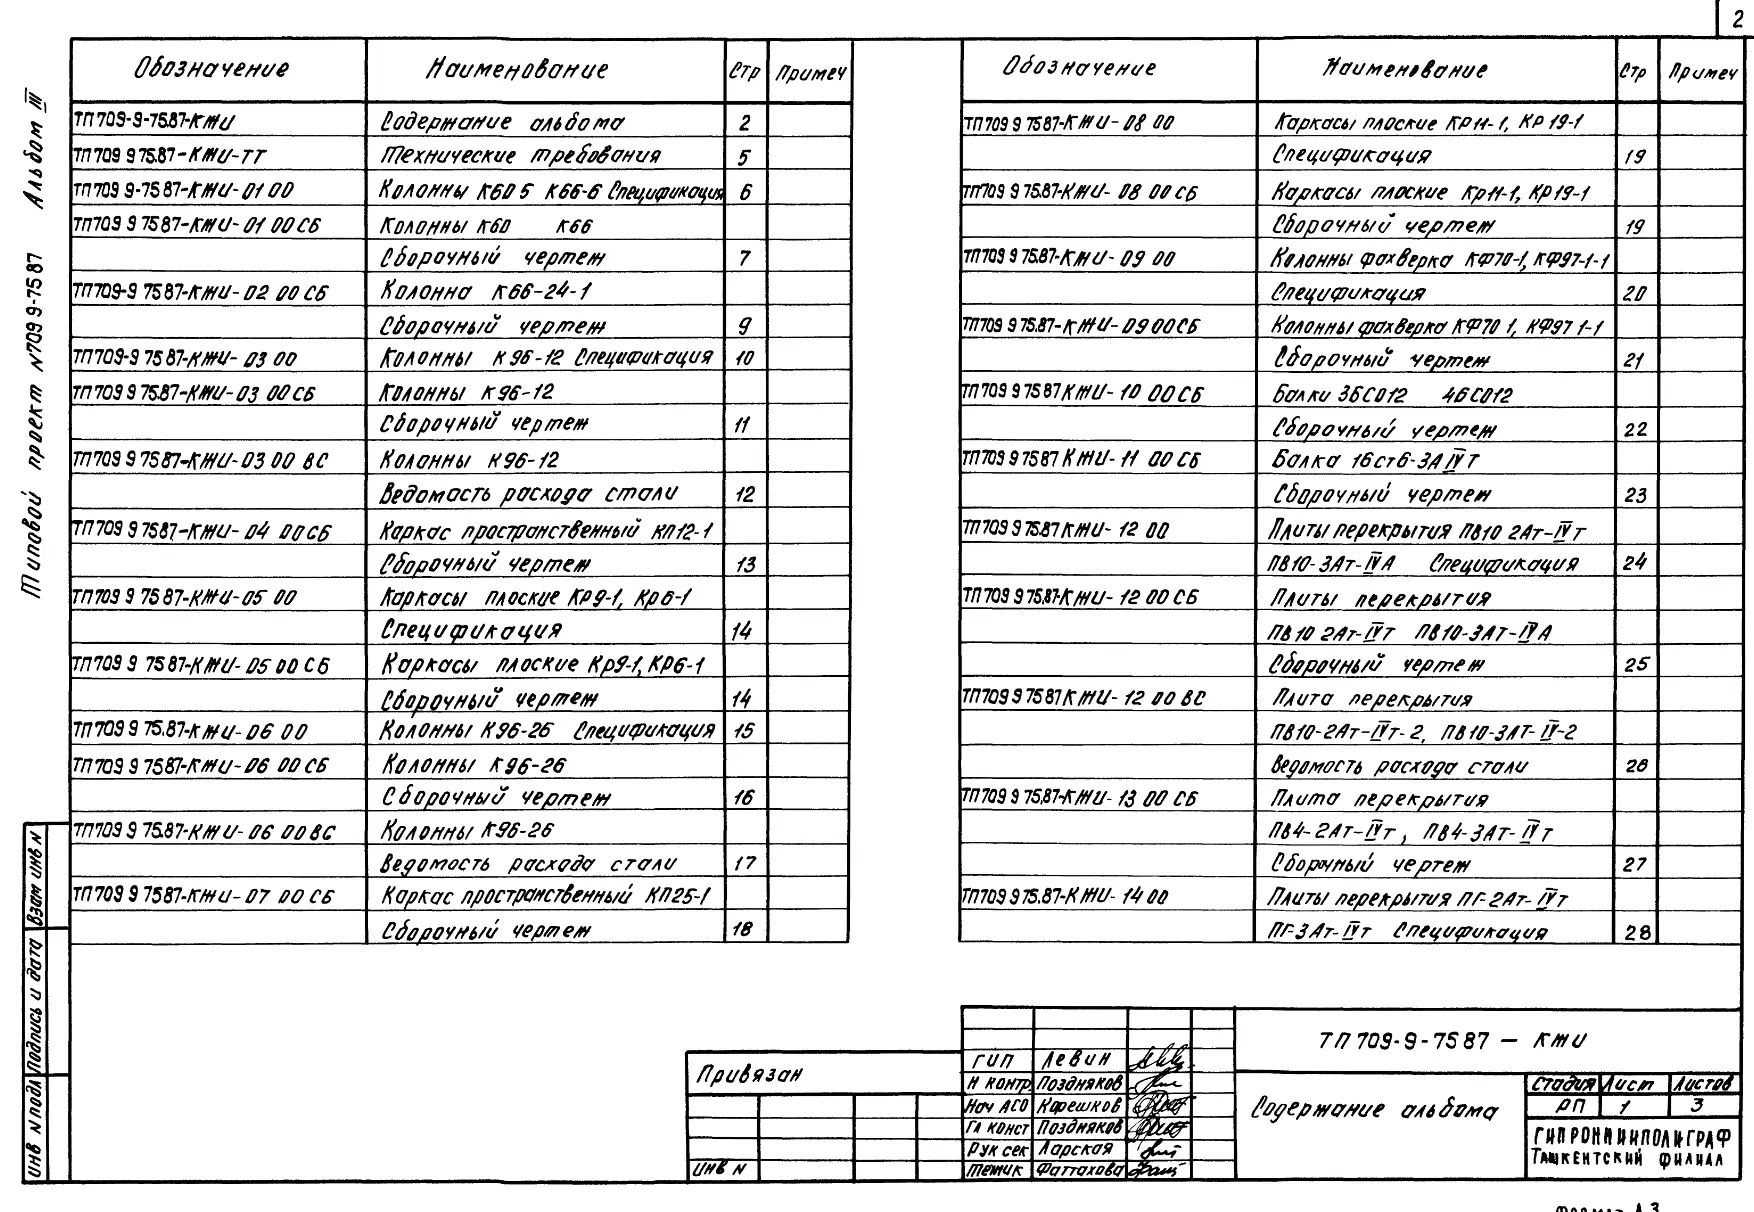 2
Альбом III
Типовой проект №709 9-75 87
Обозначение Наименование Стр Примеч
ТП 709-9-75.87-КЖИ Содержание альбома 2
ТП 709 9 75.87-КЖИ-ТТ Технические требования 5
ТП 709 9-75 87-КЖИ-01 00 Колонны К60 5 К66-6 Спецификация 6
ТП 709 9 75 87-КЖИ-01 00 СБ Колонны К60 К66
Сборочный чертеж 7
ТП 709-9 75 87-КЖИ-02 00 СБ Колонна К66-24-1
Сборочный чертеж 9
ТП 709-9 75 87-КЖИ-03 00 Колонны К 96-12 Спецификация 10
ТП 709 9 75.87-КЖИ-03 00 СБ Колонны К 96-12
Сборочный чертеж 11
ТП 709 9 75 87-КЖИ-03 00 ВС Колонны К 96-12
Ведомость расхода стали 12
ТП 709 9 7587-КЖИ-04 00 СБ Каркас пространственный КП12-1
Сборочный чертеж 13
ТП 709 9 75 87-КЖИ-05 00 Каркасы плоские КР9-1, Кр6-1
Спецификация 14
ТП 709 9 75 87-КЖИ-05 00 СБ Каркасы плоские Кр9-1, КР6-1
Сборочный чертеж 14
ТП 709 9 75.87-КЖИ-06 00 Колонны К96-26 Спецификация 15
ТП 709 9 7587-КЖИ-06 00 СБ Колонны К 96-26
Сборочный чертеж 16
ТП 709 9 75.87-КЖИ-06 00 ВС Колонны К96-26
Ведомость расхода стали 17
ТП 709 9 7587-КЖИ-07 00 СБ Каркас пространственный КП25-1
Сборочный чертеж 18
Обозначение Наименование Стр Примеч
ТП 709 9 7587-КЖИ-08 00 Каркасы плоские КР11-1, КР 19-1
Спецификация 19
ТП 709 9 75.87-КЖИ-08 00 СБ Каркасы плоские Кр11-1, КР19-1
Сборочный чертеж 19
ТП 709 9 75.87-КЖИ-09 00 Колонны фахверка КФ70-1, КФ97-1-1
Спецификация 20
ТП 709 9 75.87-КЖИ-09 00 СБ Колонны фахверка КФ70 1, КФ97 1-1
Сборочный чертеж 21
ТП 709 9 75 87 КЖИ-10 00 СБ Балки 3БСО12 4БСО12
Сборочный чертеж 22
ТП 709 9 7587 КЖИ-11 00 СБ Балка 1бст6-3А IV Т
Сборочный чертеж 23
ТП 709 9 75.87 КЖИ-12 00 Плиты перекрытия ПВ10 2Ат-IV т
ПВ10-3Ат-IV А Спецификация 24
ТП 709 9 75.87-КЖИ-12 00 СБ Плиты перекрытия
ПВ 10 2Ат-IV т ПВ10-3Ат-IV А
Сборочный чертеж 25
ТП 709 9 75 87 КЖИ-12 00 ВС Плита перекрытия
ПВ10-2Ат-IV т-2, ПВ10-3Ат-IV-2
Ведомость расхода стали 26
ТП 709 9 75.87-КЖИ-13 00 СБ Плита перекрытия
ПВ4-2Ат-IV т, ПВ4-3Ат-IV т
Сборочный чертеж 27
ТП 709 9 75.87-КЖИ-14 00 Плиты перекрытия ПГ-2Ат-IV т
ПГ-3Ат-IV т Спецификация 28
Взам инв №
Подпись и дата
Инв № подл
Привязан
Инв №
ГИП Левин
Н контр Поздняков
Нач АСО Корешков
Гл конст Поздняков
Рук сек Ларская
Техник Фаттахова
ТП 709-9-75 87 – КЖИ
Содержание альбома
Стадия Лист Листов
РП 1 3
ГИПРОНИИПОЛИГРАФ
Ташкентский филиал
Формат А3